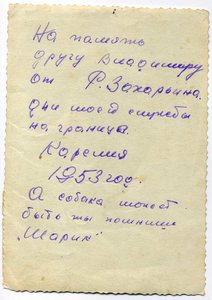 На память
другу Владимиру
от Р. Захарьина.
дни моей службы
на граница.
Карелия
1953 год.
А собака может
быть ты помниш
"Шарик"